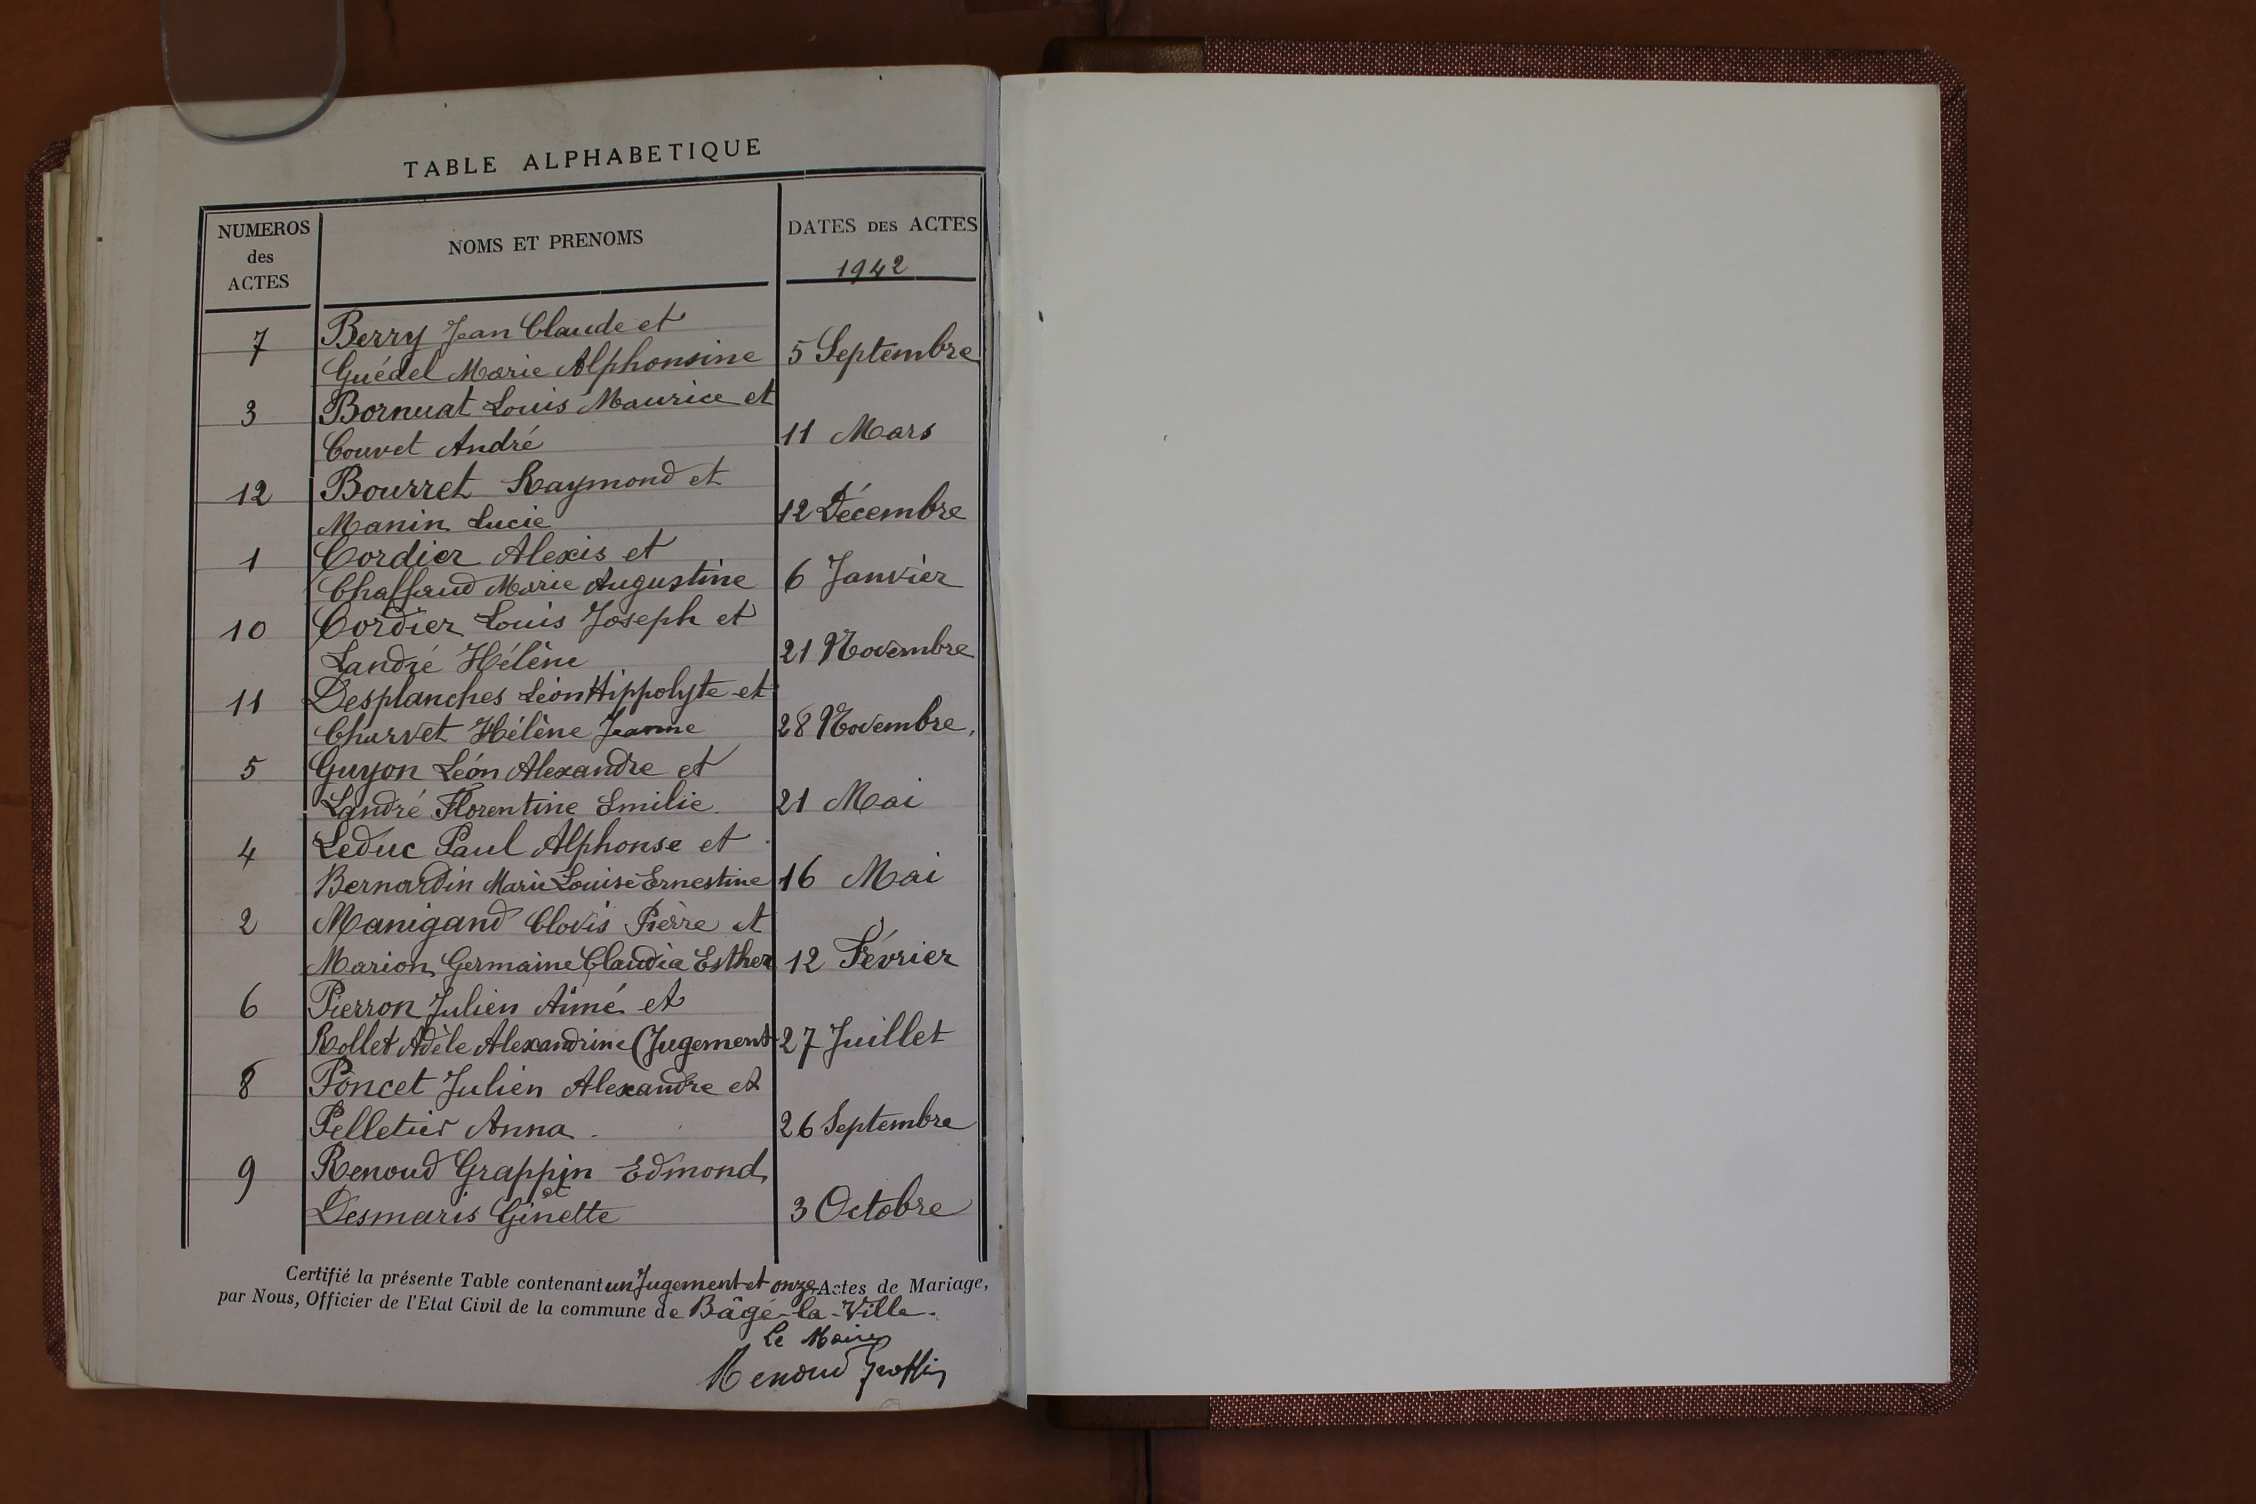 TABLE ALPHABETIQUE
NUMEROS des ACTES
NOMS ET PRENOMS
DATES DES ACTES
1942
7 Berry Jean Claude et
Guédel Marie Alphonsine 5 Septembre
3 Bornuat Louis Maurice et
Couvet André 11 Mars
12 Bourret Raymond et
Manin Lucie 12 Décembre
1 Cordier Alexis et
Chaffaud Marie Augustine 6 Janvier
10 Cordier Louis Joseph et
Landré Hélène 21 Novembre
11 Desplanches Léon Hippolyte et
Charvet Hélène Jeanne 28 Novembre.
5 Guyon Léon Alexandre et
Landré Florentine Emilie. 21 Mai
4 Leduc Paul Alphonse et
Bernardin Marie Louise Ernestine 16 Mai
2 Manigand Clovis Pierre et
Marion Germaine Claudia Esther 12 Février
6 Pierron Julien Aimé et
Rollet Adèle Alexandrine (Jugement 27 Juillet
8 Poncet Julien Alexandre et
Pelletier Anna. 26 Septembre
9 Renoud Grappin Edmond
et
Desmaris Ginette 3 Octobre
Certifié la présente Table contenant un Jugement et onze Actes de Mariage,
par Nous, Officier de l'Etat Civil de la commune de Bâgé-la-Ville.
Le Maire
Renoud Grappin